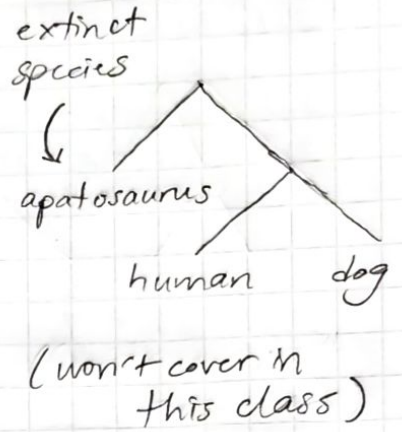 extinct
species
apatosaurus
human dog
(won't cover in
this class)